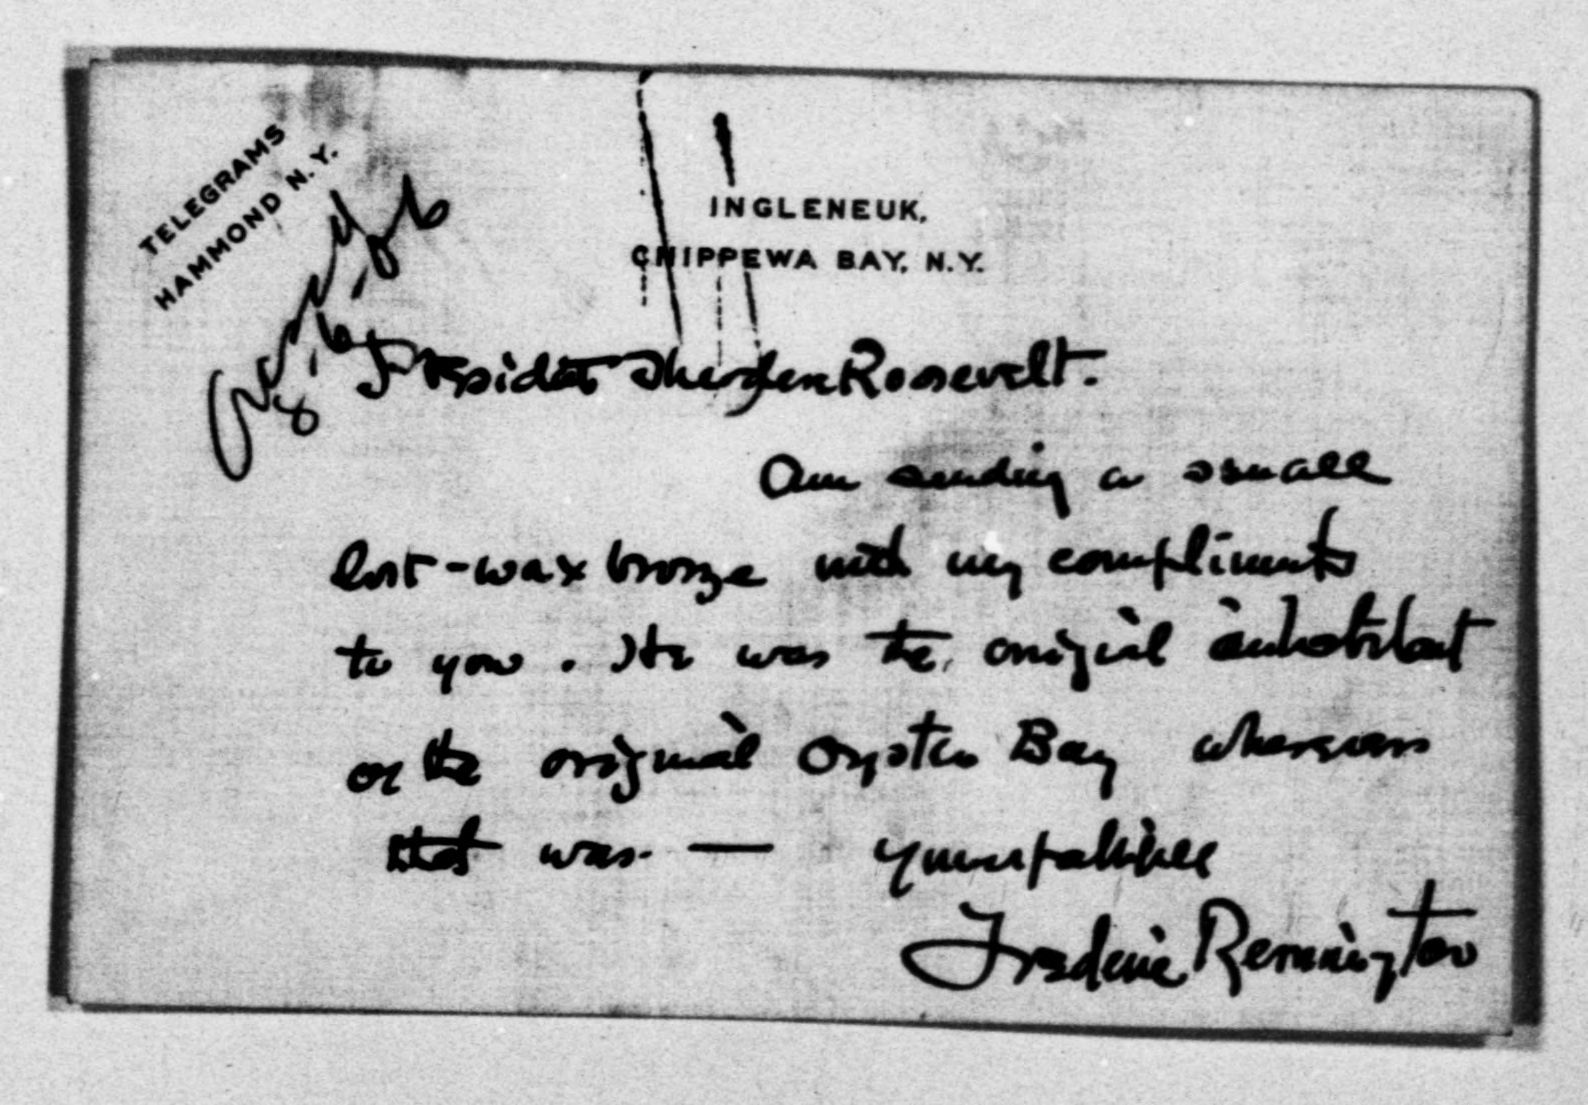 TELEGRAMS
HAMMOND N.Y.
INGLENEUK,
CHIPPEWA BAY, N.Y.
President Theodore Roosevelt.
Am sending a small
lost-wax bronze with my compliments
to you. He was the original inhabitant
of the original Oyster Bay wherever
that was —
Frederic Remington